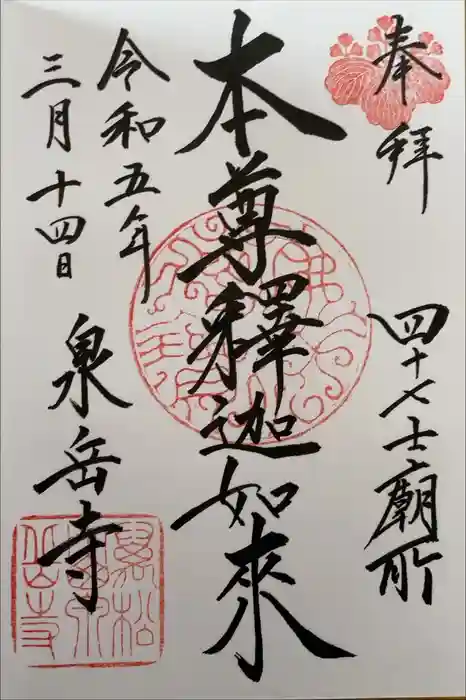 奉拝
四十七士廟所
本尊釋迦如來
令和五年
三月十四日
泉岳寺
萬松
泉岳寺